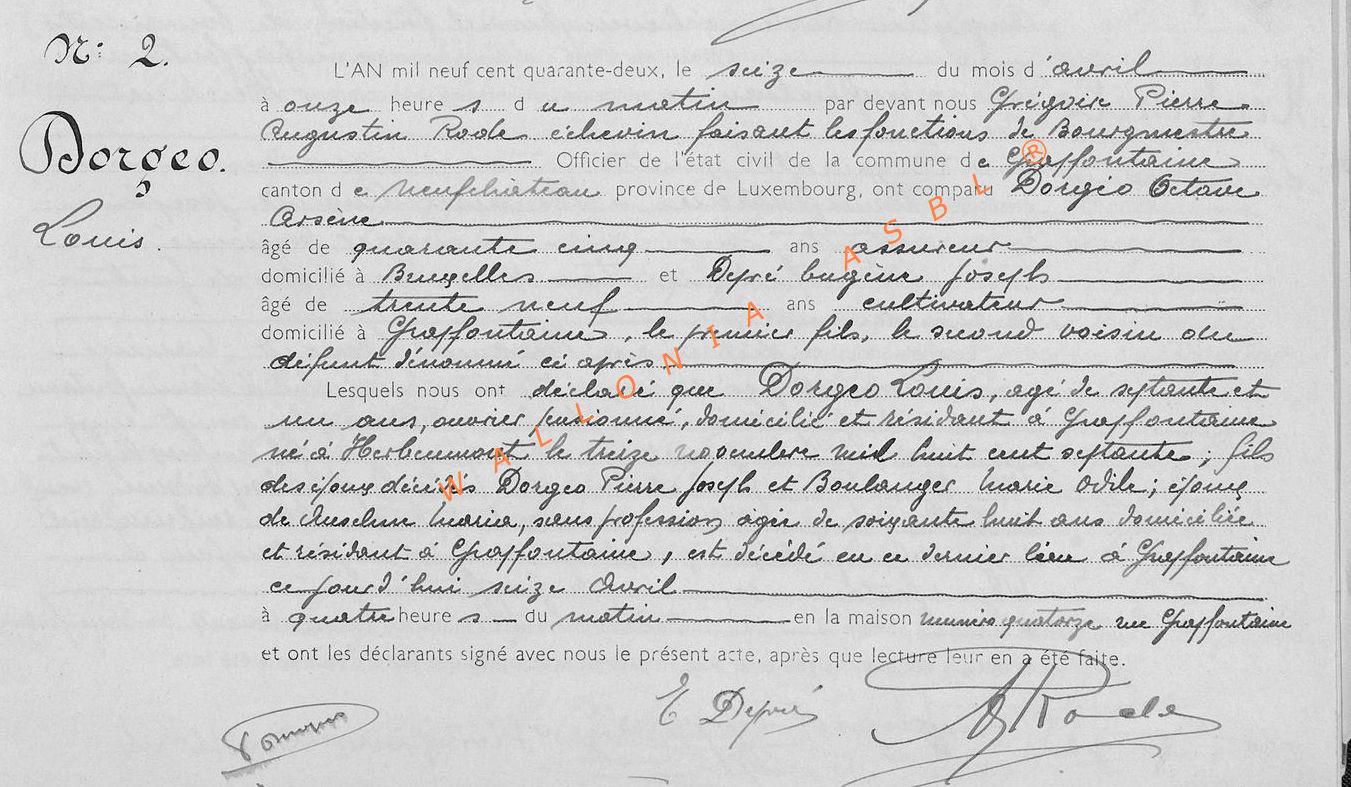 N: 2.
Dorgeo.
Louis.
L'AN mil neuf cent quarante-deux, le seize du mois d'avril
à onze heures du matin par devant nous Grégoire Pierre
Augustin Rode échevin faisant les fonctions de Bourgmestre
Officier de l'état civil de la commune de Grapfontaine
canton de Neufchâteau province de Luxembourg, ont comparu Dorgeo Octave
Arsène
âgé de quarante cinq ans assureur
domicilié à Bruxelles et Depré Eugène Joseph
âgé de trente neuf ans cultivateur
domicilié à Grapfontaine, le premier fils, le second voisin du
défunt dénommé ci après.
Lesquels nous ont déclaré que Dorgeo Louis, agé de septante et
un ans, ouvrier pensionné, domicilié et résidant à Grapfontaine
né à Herbeumont le treize novembre mil huit cent septante; fils
des époux décédés Dorgeo Pierre Joseph et Boulanger Marie Odile; époux
de Anselme Maria, sans profession, agée de soixante huit ans domiciliée
et résidant à Grapfontaine, est décédé en ce dernier lieu à Grapfontaine
ce jourd'hui seize avril
à quatre heures du matin en la maison numéro quatorze rue Grapfontaine
et ont les déclarants signé avec nous le présent acte, après que lecture leur en a été faite.
E Depré
Rode
WALLONIA ASBL ®